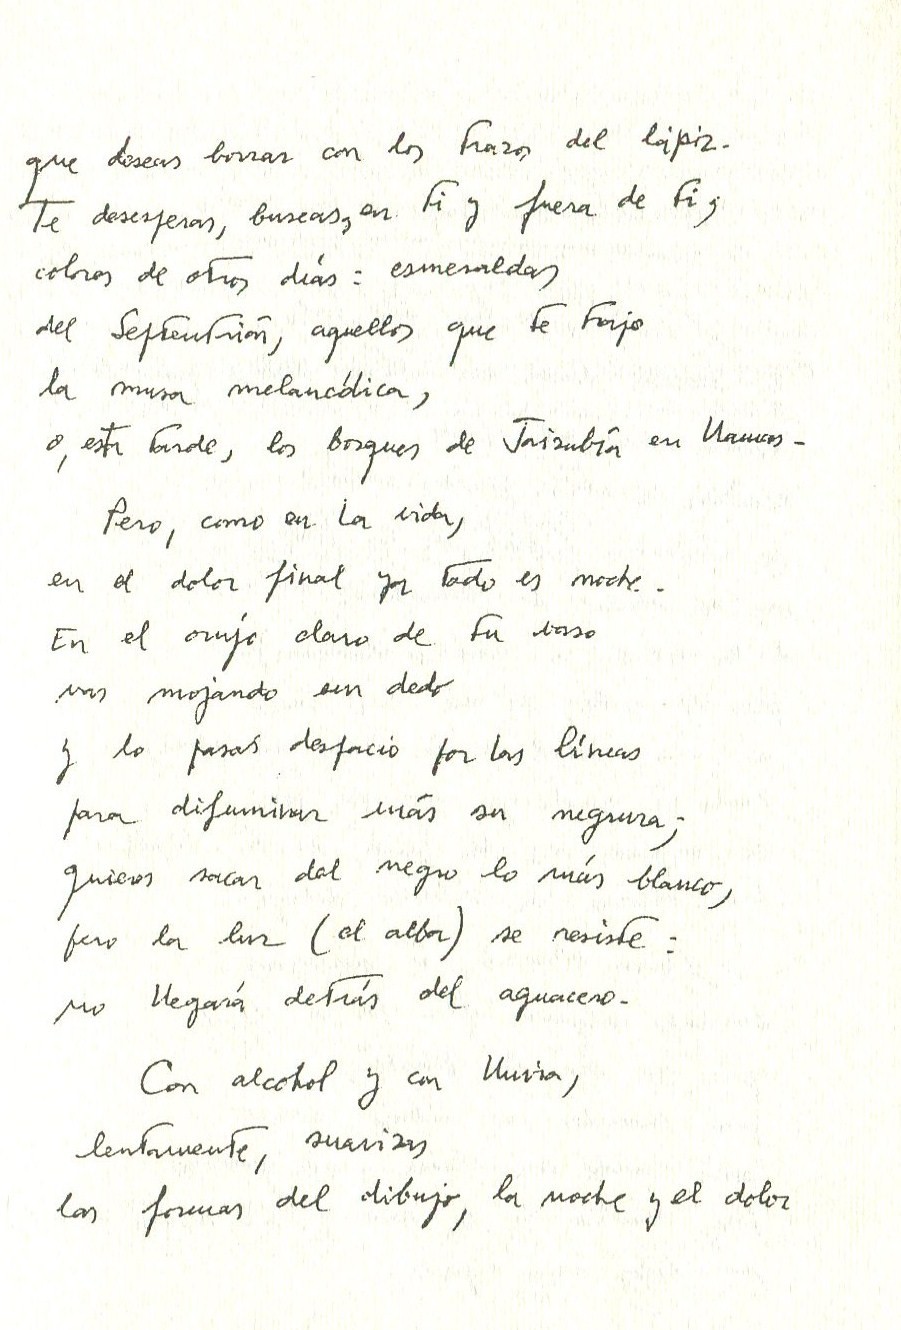 que deseas borrar con los trazos del lápiz.
Te desesperas, buscas, en ti y fuera de ti,
colores de otros días: esmeraldas
del Septentrión, aquellos que te trajo
la musa melancólica,
o, esta tarde, los bosques de en llamas.
Pero, como en la vida,
en el dolor final ya todo es noche.
En el orujo claro de tu vaso
vas mojando un dedo
y lo pasas despacio por las líneas
para difuminar más su negrura;
quieres sacar del negro lo más blanco,
pero la luz (el alba) se resiste:
no llegará detrás del aguacero.
Con alcohol y con lluvia,
lentamente, suavizas
las formas del dibujo, la noche y el dolor